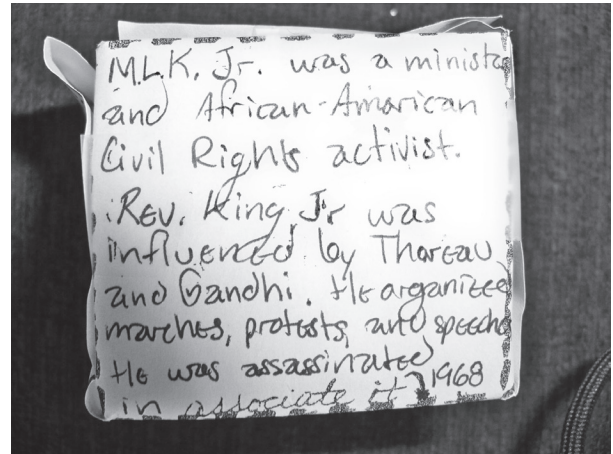 M.L.K. Jr. was a minister
and African-American
Civil Rights activist.
Rev. King Jr was
influenced by Thoreau
and Gandhi. He organized
marches, protests, and speeches
He was assassinated
in associate it 1968